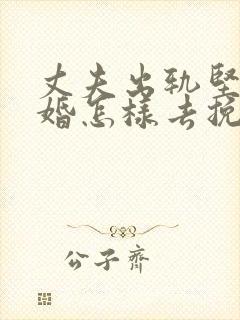 丈夫出轨坚
婚怎样去挽
公子齐